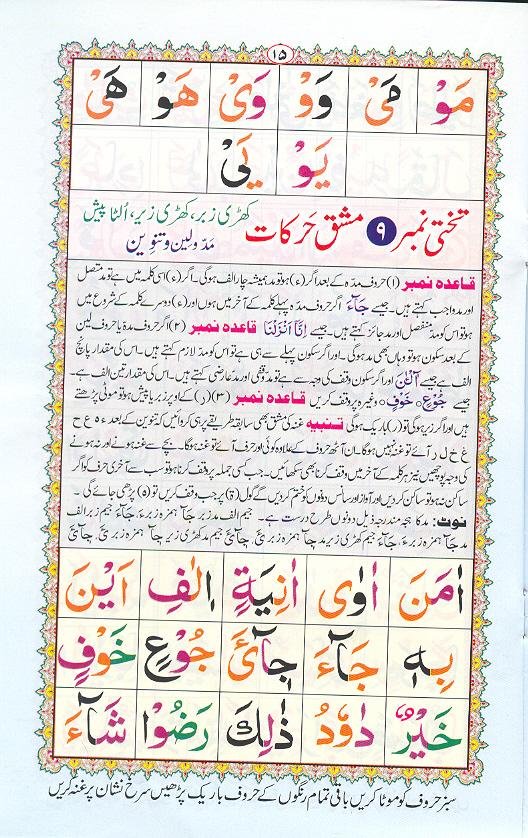 ۱۵
مَوْ مَیْ وَوْ وَیْ هَوْ هَیْ
یَوْ یَیْ
تختی نمبر ۹ مشق حرکات
کھڑی زبر، کھڑی زیر، اُلٹا پیش
مدّ ولین و تنوین
قاعدہ نمبر (۱) حروف مدّہ کے بعد اگر (ء) ہو تو مد ہمیشہ چار الف ہوگی۔ اگر (ء) اسی کلمہ میں ہے تو مد متصل
اور مد واجب کہتے ہیں۔ جیسے جَآءَ اگر حروف مدّہ پہلے کلمہ کے آخر میں ہوں اور (ء) دوسرے کلمے کے شروع میں
ہو تو اس کو مد منفصل اور مد جائز کہتے ہیں۔ جیسے اِنَّاۤ اَنْزَلْنَا قاعدہ نمبر (۲) اگر حروف مدہ یا حروف لین
کے بعد سکون ہو تو وہاں بھی مد ہوگی۔ اور اگر سکون پہلے سے ہی ہے تو اس کو مدّ لازم کہتے ہیں۔ اس کی مقدار پانچ
الف ہے جیسے آٰلْـٰٔنَ اور اگر سکون وقف کی وجہ سے ہے تو مد وقفی اور مد عارضی کہتے ہیں۔ اس کی مقدار تین الف ہے۔
جیسے جُوْعٍ ۰ خَوْفٍ ۰ وغیرہ پر وقف کریں قاعدہ نمبر (۳) (ر) کے اوپر زبر یا پیش ہو تو موٹی پڑھتے
ہیں اور اگر زیر ہوگی تو (ر) باریک ہوگی تنبیہ غنہ کی مشق بھی سابقہ طریقے پر ہی کروائیں کہ تنوین کے بعد ء ہ ع ح
غ خ ل ر آئے تو غنہ نہیں ہوگا۔ ان آٹھ حروف کے علاوہ کوئی اور حرف آئے تو غنہ ہوگا۔ بچے سے غنہ ہونے اور نہ ہونے
کی وجہ پوچھیں نیز ہر کلمہ کے آخر میں وقف کرنا بھی سکھائیں۔ جب کسی جملہ پر وقف کرنا ہو تو سب سے آخری حرف کو اگر
ساکن نہ ہو تو ساکن کر دیں اور آواز اور سانس دونوں کو ختم کر دیں گے گول (ۃ) پر جب وقف کریں تو (ہ) پڑھی جائے گی۔
نوٹ: مد کا ہجہ مندرجہ ذیل دونوں طرح درست ہے۔ جیم الف مد زبر جَآ ہمزہ زبر ءَ، جَآءَ جیم زبر الف
مد جَآ ہمزہ زبر ءَ، جَآءَ جیم کھڑی زیر مد
اٰمَنَ اٰوٰی اٰنِیَةٍ اِلٰفِ اَیْنَ
بِهٖ جَآءَ جِآیْٓءَ جُوْعٍ خَوْفٍ
خَیْرٌ دَاوٗدُ ذٰلِكَ رَضُوْا شَآءَ
سبز حروف کو موٹا کریں باقی تمام رنگوں کے حروف باریک پڑھیں سرخ نشان پر غنہ کریں